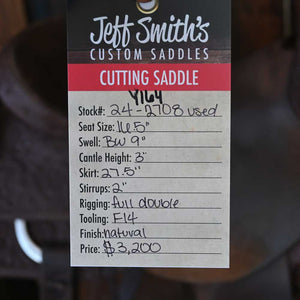 Jeff Smith's
CUSTOM SADDLES
CUTTING SADDLE
Y164
Stock#: 24-2708 used
Seat Size: 16.5"
Swell: BW 9"
Cantle Height: 3"
Skirt: 27.5"
Stirrups: 2"
Rigging: full double
Tooling: F14
Finish: natural
Price: $3,200